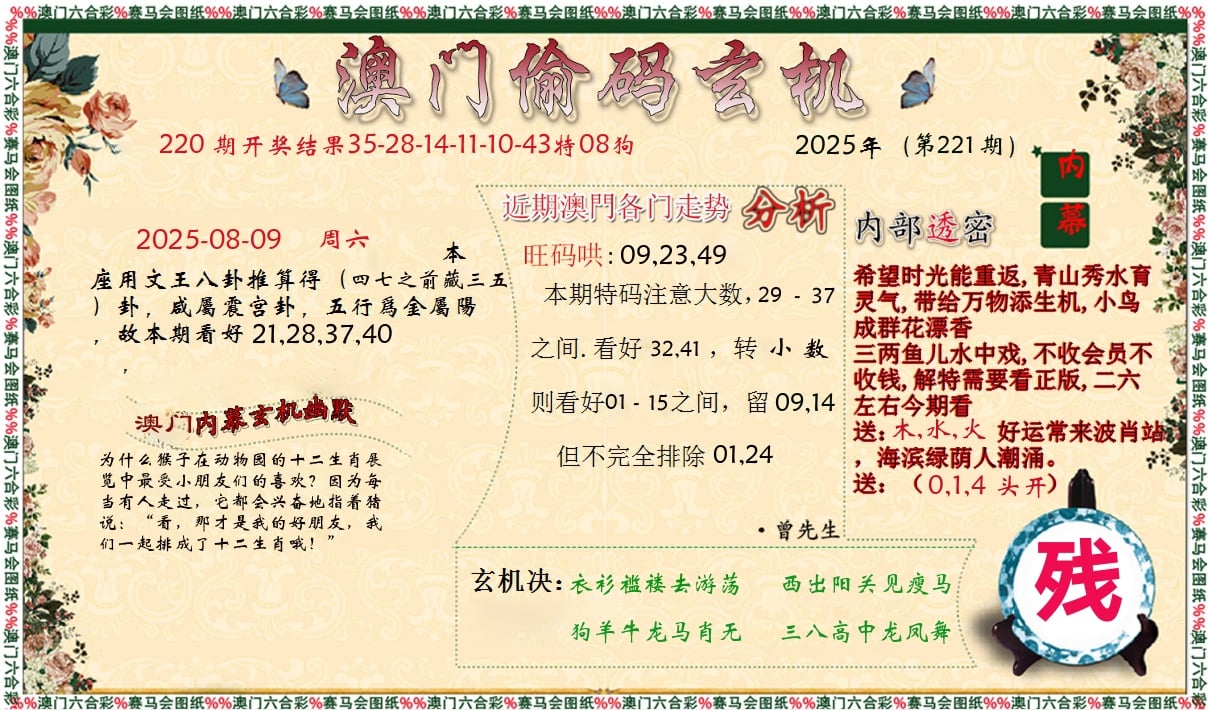 %%澳门六合彩%赛马会图纸%%澳门六合彩%赛马会图纸%%澳门六合彩%赛马会图纸%%澳门六合彩%赛马会图纸%%澳门六合彩%赛马会图纸%%澳门六合彩%赛马会图纸%%
澳门偷码玄机
220 期开奖结果35-28-14-11-10-43特08狗
2025年（第221期）
内幕
2025-08-09 周六
本
座用文王八卦推算得（四七之前藏三五
）卦，咸屬震宫卦，五行爲金屬陽
，故本期看好 21,28,37,40
，
澳门内幕玄机幽默
为什么猴子在动物园的十二生肖展
览中最受小朋友们的喜欢？因为每
当有人走过，它都会兴奋地指着猪
说：“看，那才是我的好朋友，我
们一起排成了十二生肖哦！”
近期澳門各门走势 分析
旺码哄: 09,23,49
本期特码注意大数, 29 - 37
之间. 看好 32,41 ，转 小 数
则看好01 - 15之间，留 09,14
但不完全排除 01,24
·曾先生
内部透密
希望时光能重返, 青山秀水育
灵气, 带给万物添生机, 小鸟
成群花漂香
三两鱼儿水中戏, 不收会员不
收钱, 解特需要看正版, 二六
左右今期看
送: 木, 水, 火 好运常来波肖站
，海滨绿荫人潮涌。
送: （0,1,4 头开）
残
玄机决: 衣衫褴褛去游荡 西出阳关见瘦马
狗羊牛龙马肖无 三八高中龙凤舞
%%澳门六合彩%赛马会图纸%%澳门六合彩%赛马会图纸%%澳门六合彩%赛马会图纸%%澳门六合彩%赛马会图纸%%澳门六合彩%赛马会图纸%%澳门六合彩%赛马会图纸%%